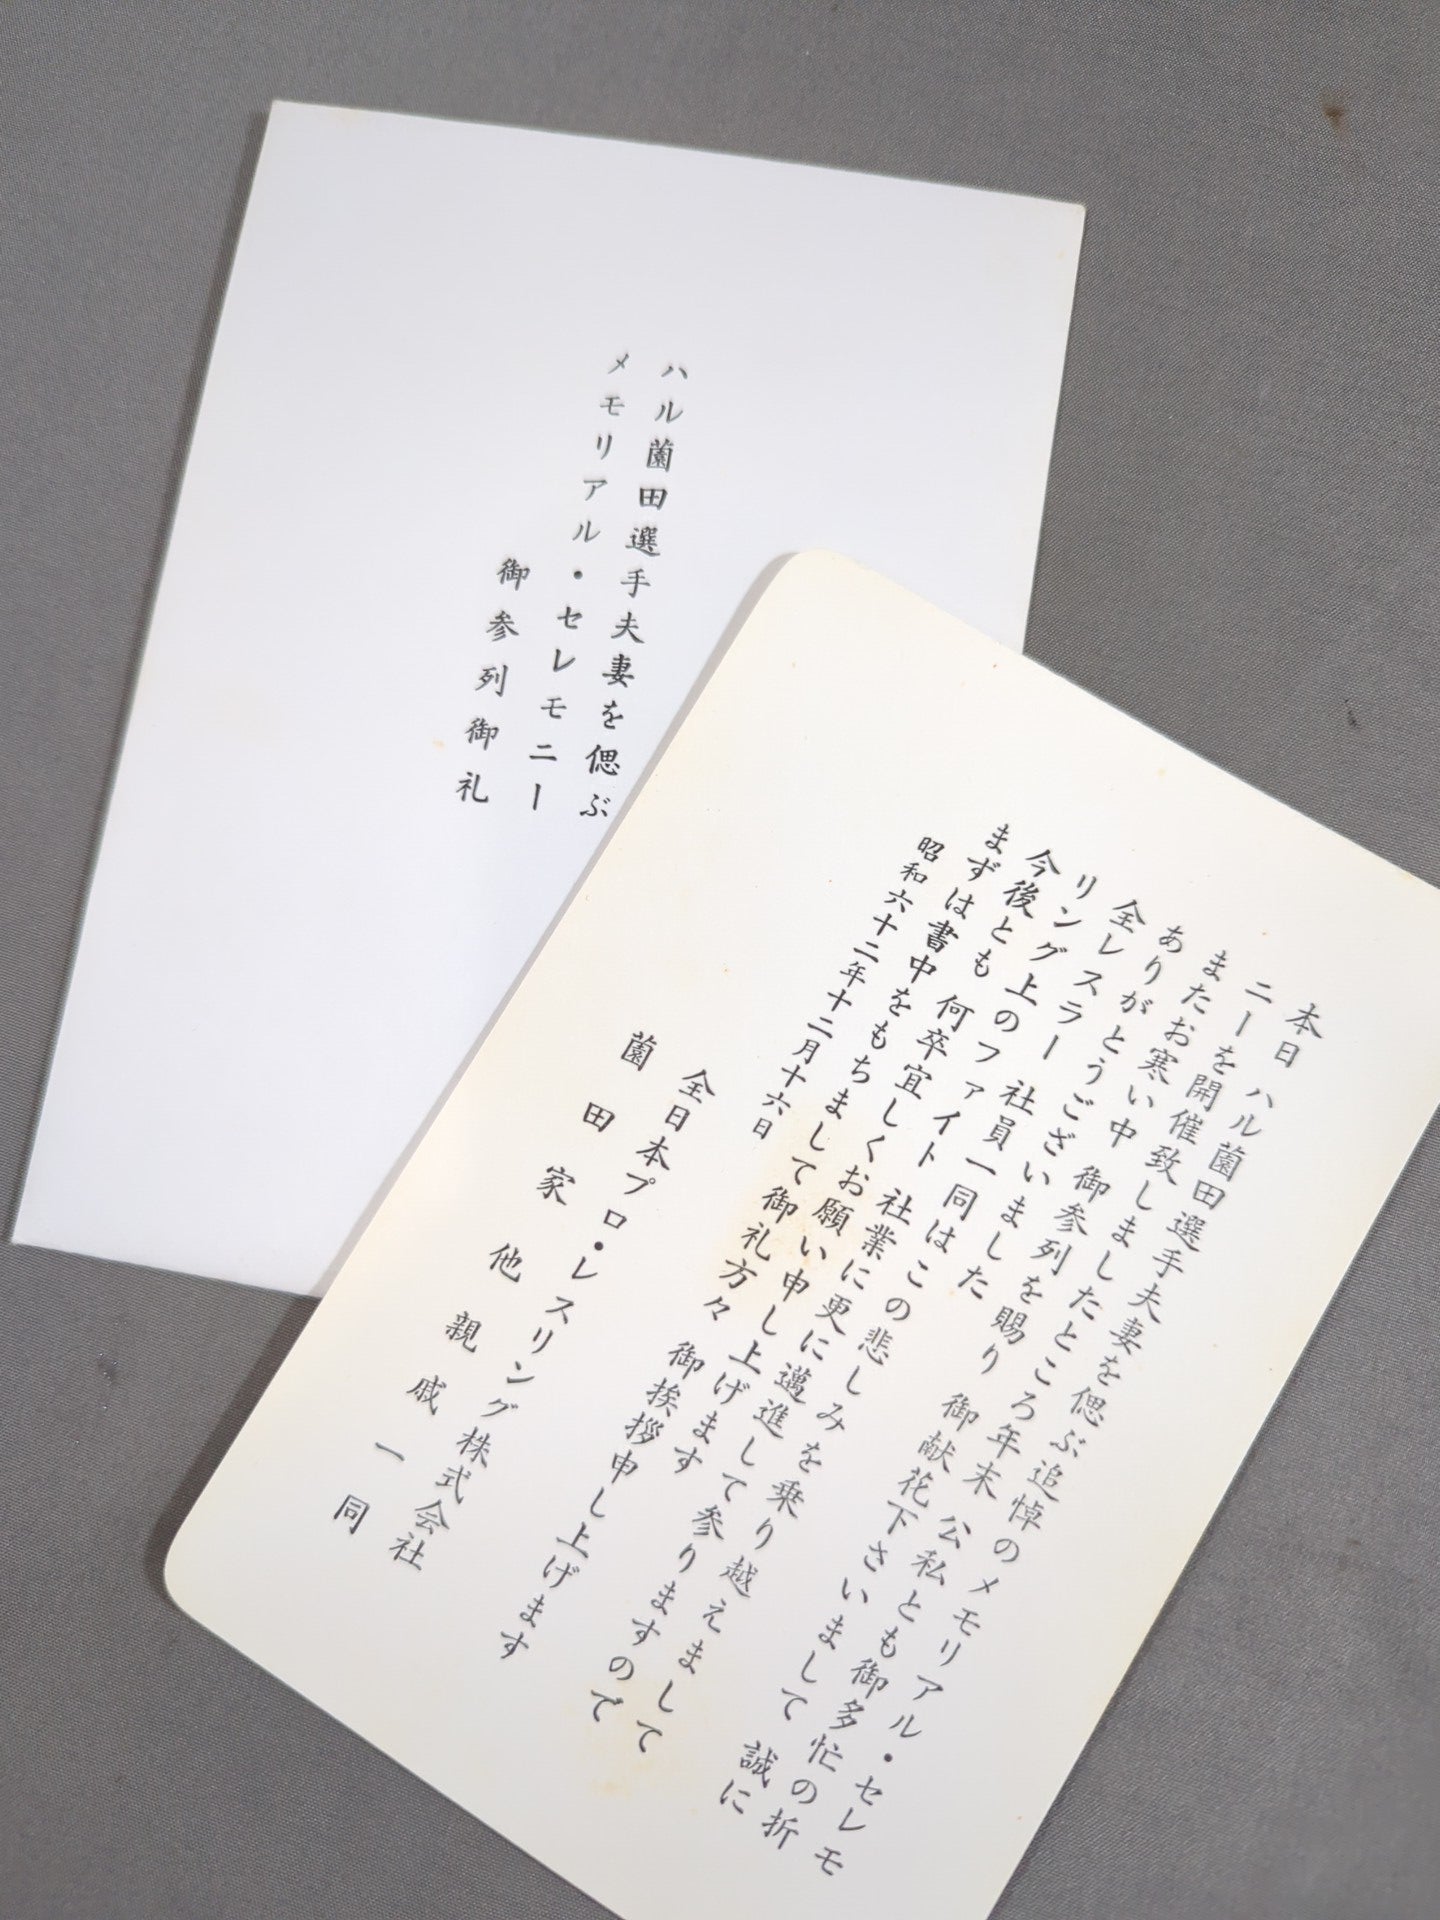 ハル薗田選手夫妻を偲ぶ
メモリアル・セレモニー
御参列御礼
本日 ハル薗田選手夫妻を偲ぶ追悼のメモリアル・セレモ
ニーを開催致しましたところ年末 公私とも御多忙の折
またお寒い中 御参列を賜り 御献花下さいまして 誠に
ありがとうございました
全レスラー 社員一同はこの悲しみを乗り越えまして
リングス上のファイト 社業に更に邁進して参りますので
今後とも 何卒宜しくお願い申し上げます
まずは書中をもちまして御礼方々 御挨拶申し上げます
昭和六十二年十二月十六日
全日本プロ・レスリング株式会社
薗田家他親戚一同